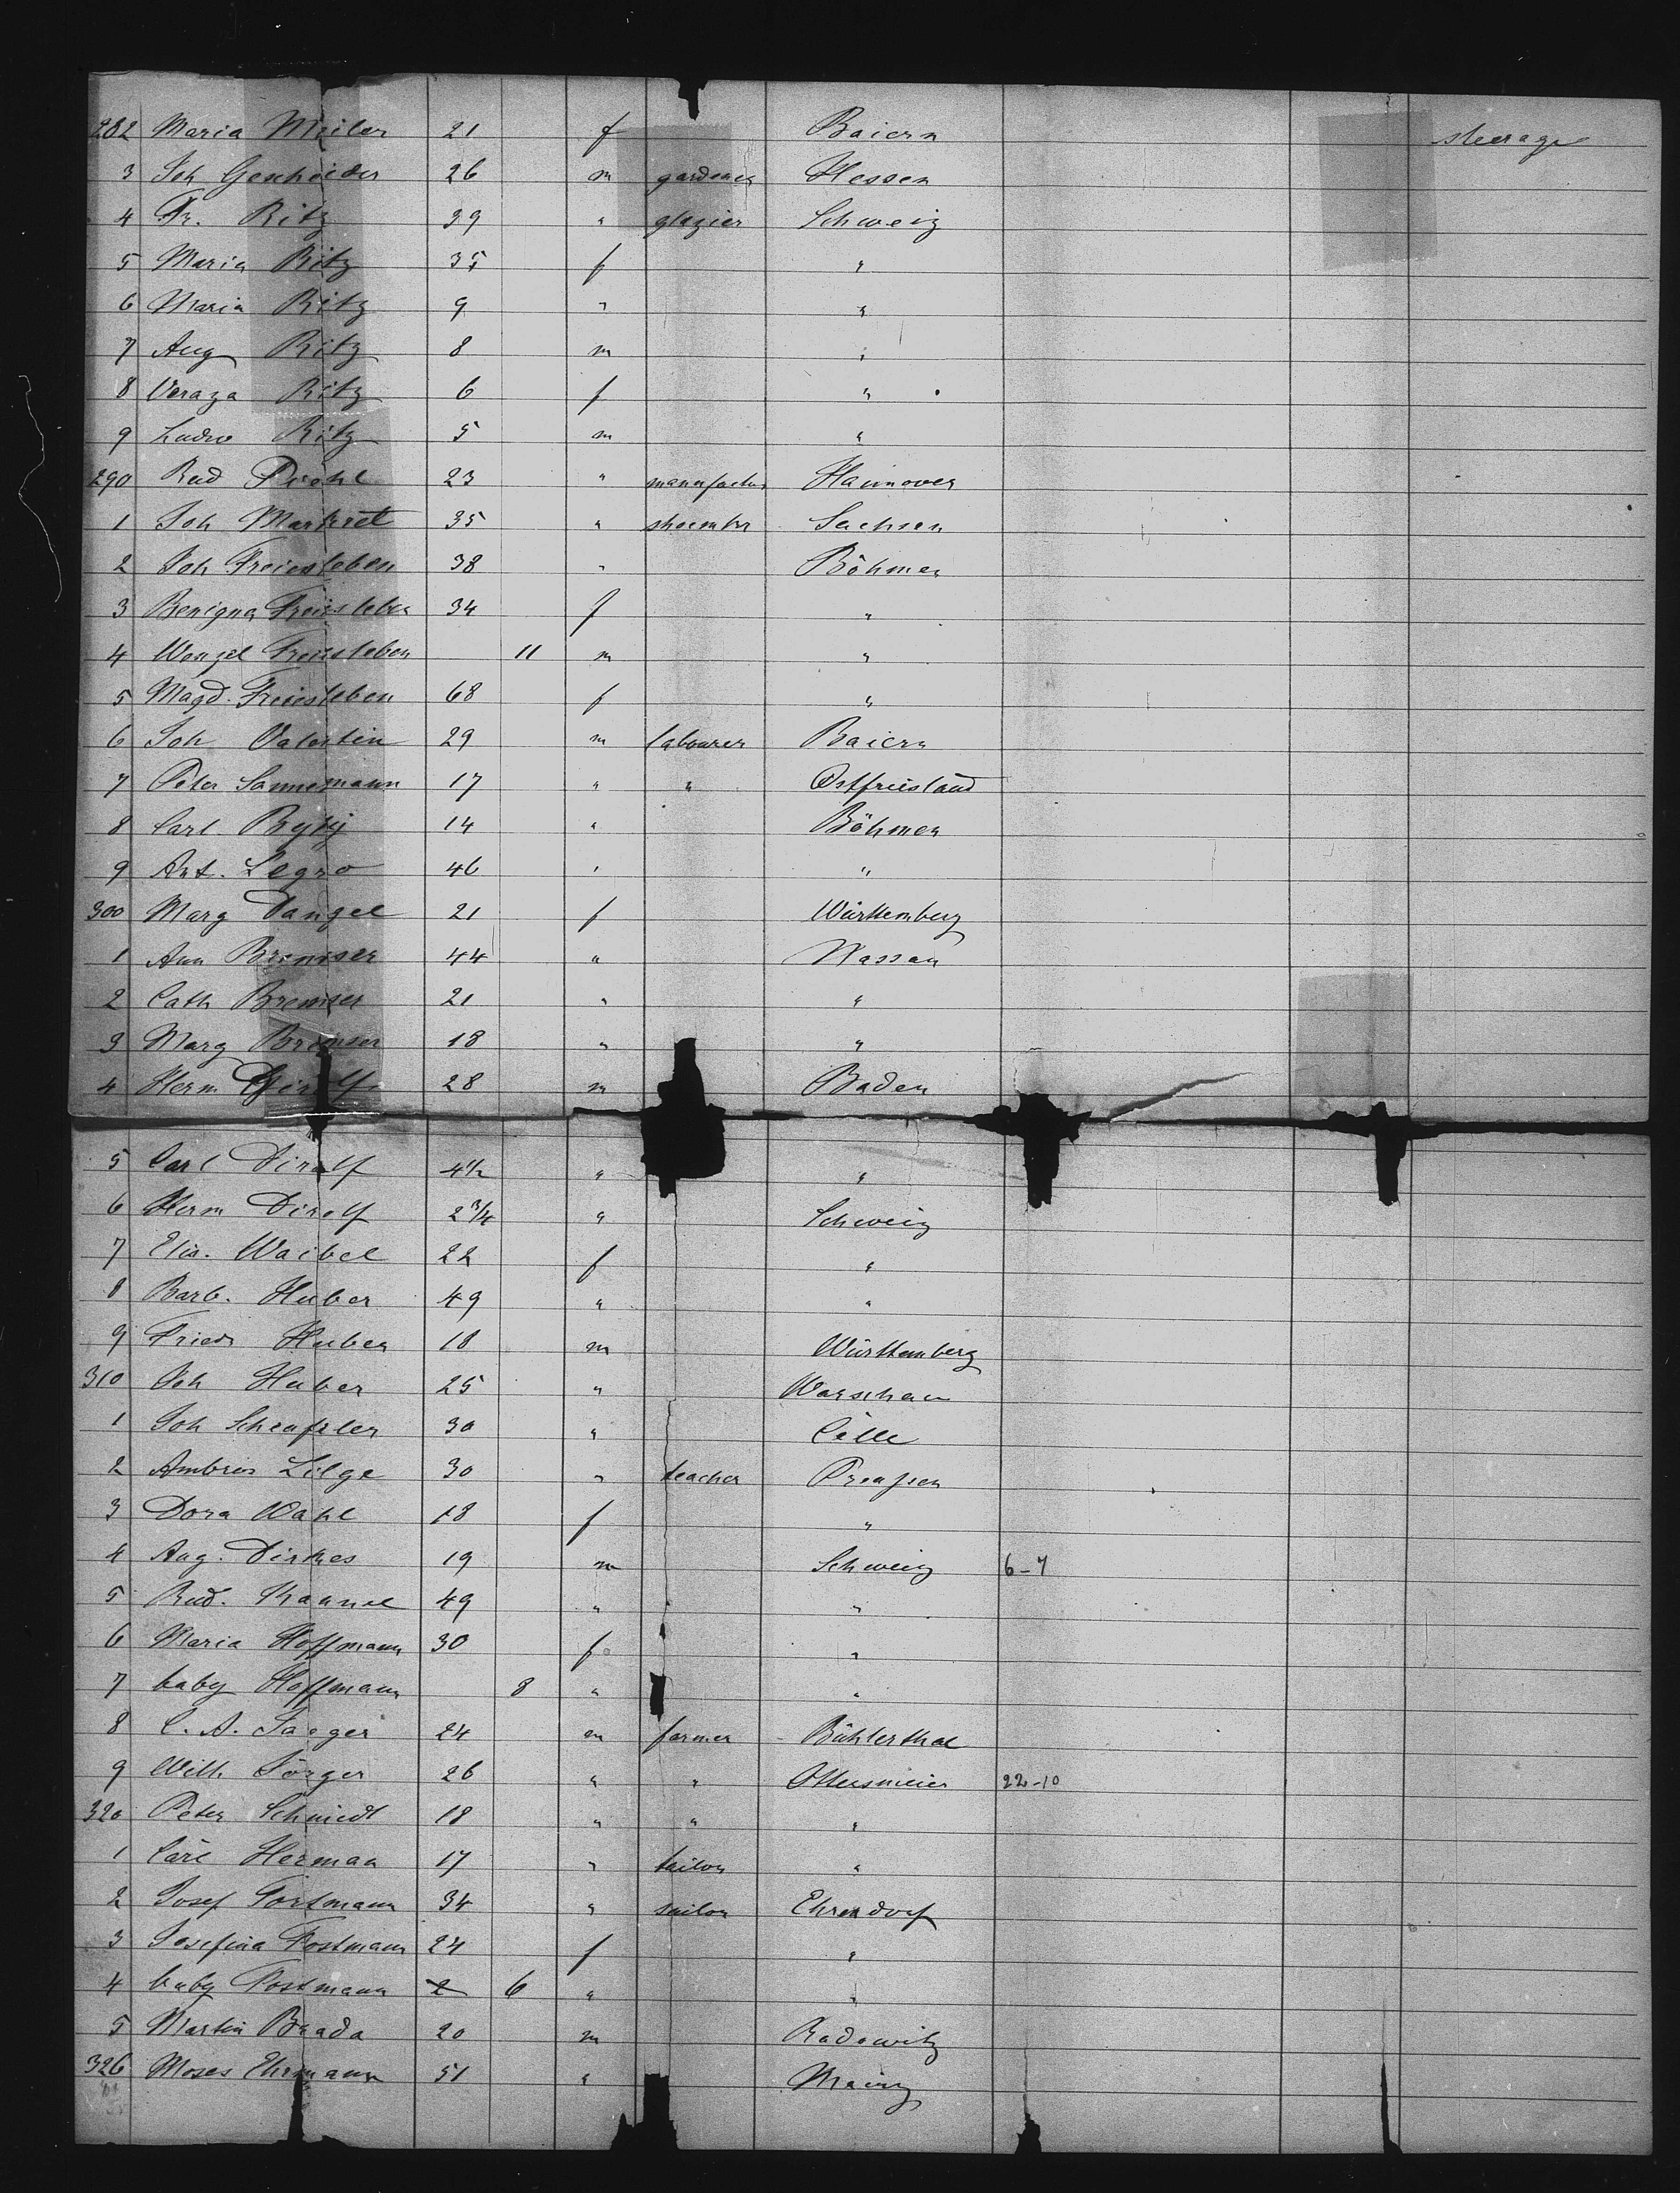 282 Maria Meiler 21 f Baiern steerage
3 Joh Gescheider 26 m gardener Hessen
4 Fr. Ritz 39 " glazier Schweiz
5 Maria Ritz 35 f "
6 Maria Ritz 9 " "
7 Aug Ritz 8 m "
8 Veraza Ritz 6 f "
9 Ludw Ritz 5 m "
290 Rud 23 " manufactur Hannover
1 Joh Markert 35 " shoemkr Sachsen
2 Joh Freiesleben 38 " Böhmen
3 Benigna Freiesleben 34 f "
4 Wenzel Freiesleben 11 m "
5 Magd. Freiesleben 68 f "
6 Joh Valentin 29 m labourer Baiern
7 Peter Sannemann 17 " " Ostfriesland
8 Carl 14 " Böhmen
9 Ant. Legro 46 " "
300 Marg Dangel 21 f Württemberg
1 Ann Bremser 44 " Nassau
2 Cath Bremser 21 " "
3 Marg Bremser 18 " "
4 Herm 28 m Baden
5 Carl Dirolf 4 1/2 " "
6 Herm Dirolf 2 3/4 " Schweiz
7 Elis. Waibel 22 f "
8 Barb. Huber 49 " "
9 Friedr Huber 18 m Württemberg
310 Joh Huber 25 " Warschau
1 Joh Scheufeler 30 " Celle
2 Ambros Lilge 30 " teacher Preussen
3 Dora Wahl 18 f "
4 Aug. Dirkes 19 m Schweiz 6-7
5 Rud. Kaanel 49 " "
6 Maria Hoffmann 30 f "
7 baby Hoffmann 8 " "
8 C. A. Jaeger 24 m farmer Bühlerthal
9 Wilh Sörger 26 " " Ottersmeier 22-10
320 Peter Schmidt 18 " " "
1 Carl Herman 17 " tailor "
2 Josef Fortmann 34 " sailor Ehrendorf
3 Josefina Fostmann 24 f "
4 baby Fostmann 2 6 " "
5 Martin Brada 20 m Radowitz
326 Moses Ehrmann 51 " Mainz